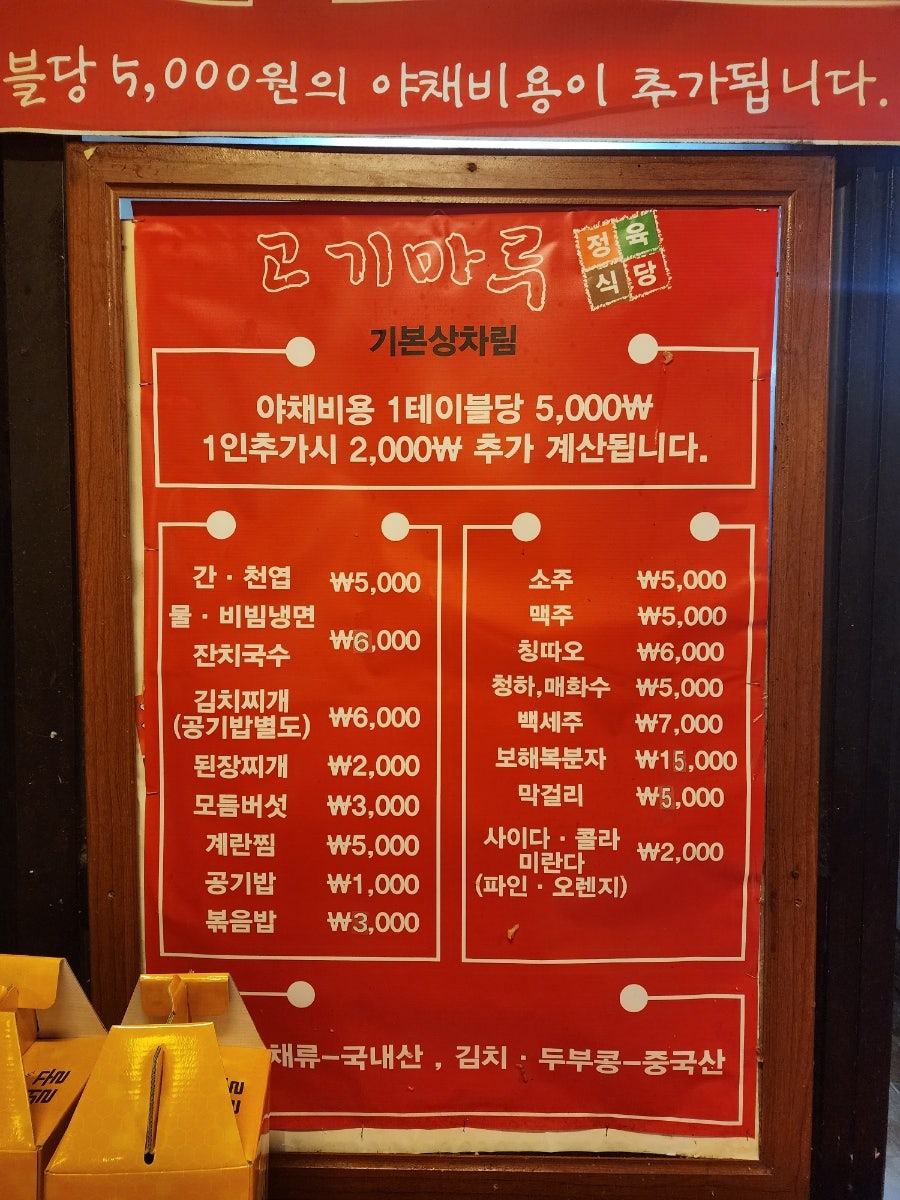 블당 5,000원의 야채비용이 추가됩니다.
고기마루 정육식당
기본상차림
야채비용 1테이블당 5,000₩
1인추가시 2,000₩ 추가 계산됩니다.
간 · 천엽 ₩5,000
물 · 비빔냉면
잔치국수 ₩6,000
김치찌개
(공기밥별도) ₩6,000
된장찌개 ₩2,000
모듬버섯 ₩3,000
계란찜 ₩5,000
공기밥 ₩1,000
볶음밥 ₩3,000
소주 ₩5,000
맥주 ₩5,000
칭따오 ₩6,000
청하,매화수 ₩5,000
백세주 ₩7,000
보해복분자 ₩15,000
막걸리 ₩5,000
사이다 · 콜라
미란다 ₩2,000
(파인 · 오렌지)
채류-국내산 , 김치 · 두부콩-중국산